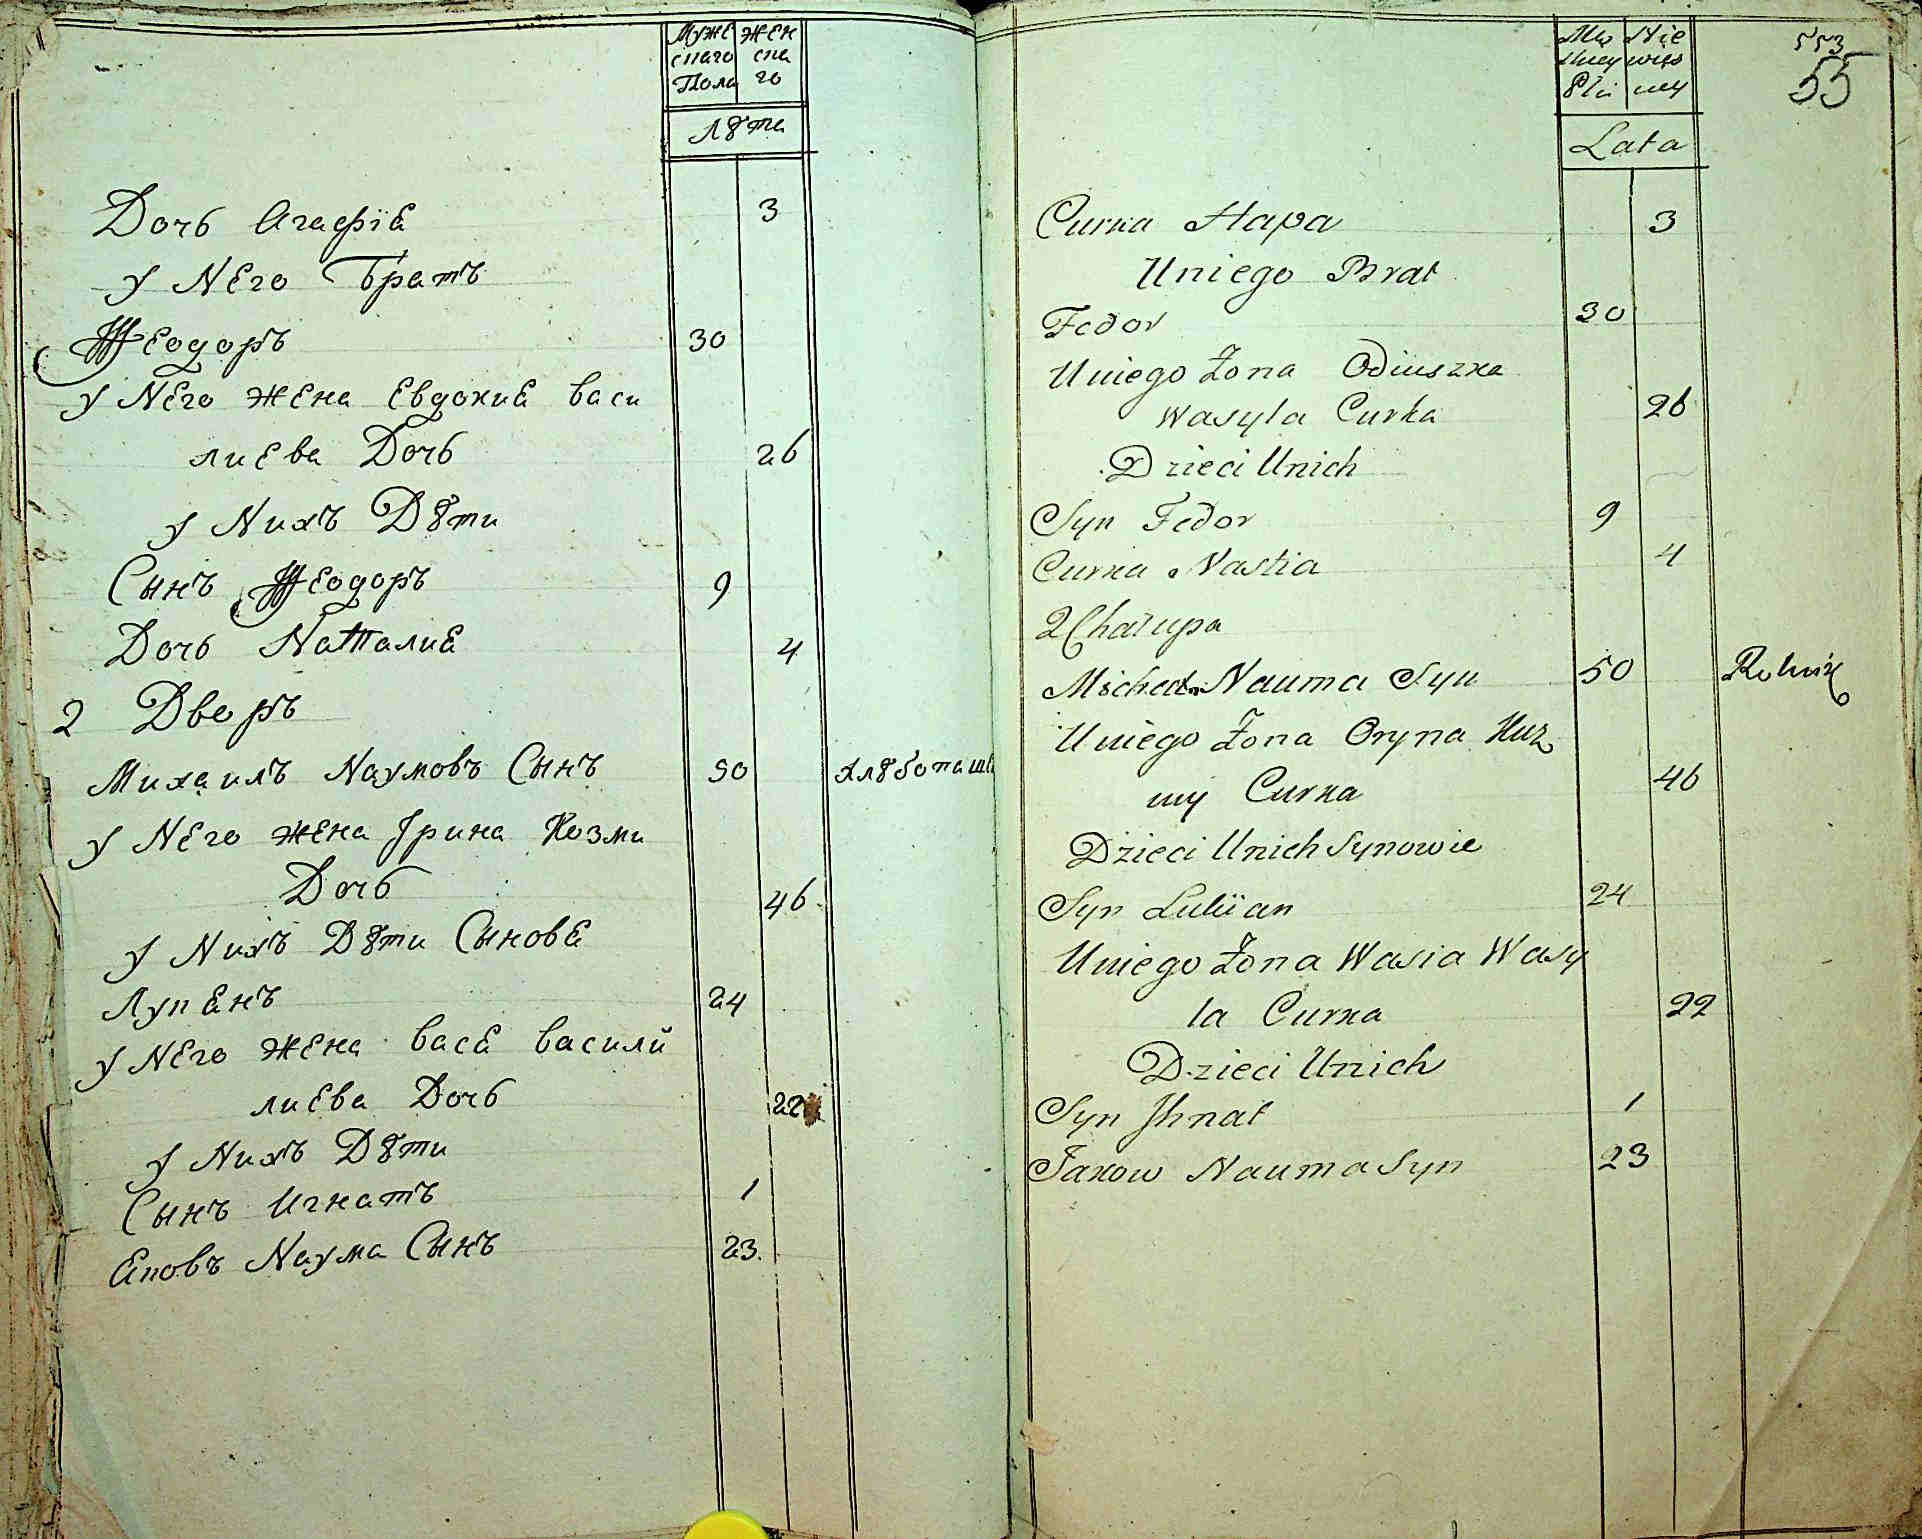 Муже жен
скаго ска
Пола го
Лѣта
Дочь Агафіѧ 3
у Него Братъ
Ѳеодоръ 30
у Него жена Евдокиѧ васи
лиева Дочь 26
у Нихъ Дѣти
Сынъ Ѳеодоръ 9
Дочь Наталиѧ 4
2 Дворъ
Михаилъ Наумовъ Сынъ 50
у Него жена Ірина Козми
Дочь 46
у Нихъ Дѣти Сыновѧ
Лукѧнъ 24
у Него жена васѧ василй
лиева Дочь 22
у Нихъ Дѣти
Сынъ Игнатъ 1
Ѧковъ Наума Сынъ 23
553
55
Lata
Curka Hapa 3
Uniego Brat
Fedor 30
Uniego Żona Odiuszka
Wasyla Curka 26
Dzieci Unich
Syn Fedor 9
Curka Nastia 4
2 Chałupa
Michał Nauma Syn 50 Rolnik
Uniego Żona Oryna Kuz
my Curka 46
Dzieci Unich Synowie
Syn Lukiian 24
Uniego Żona Wasia Wasy
la Curka 22
Dzieci Unich
Syn Ihnat 1
Jakow Nauma Syn 23